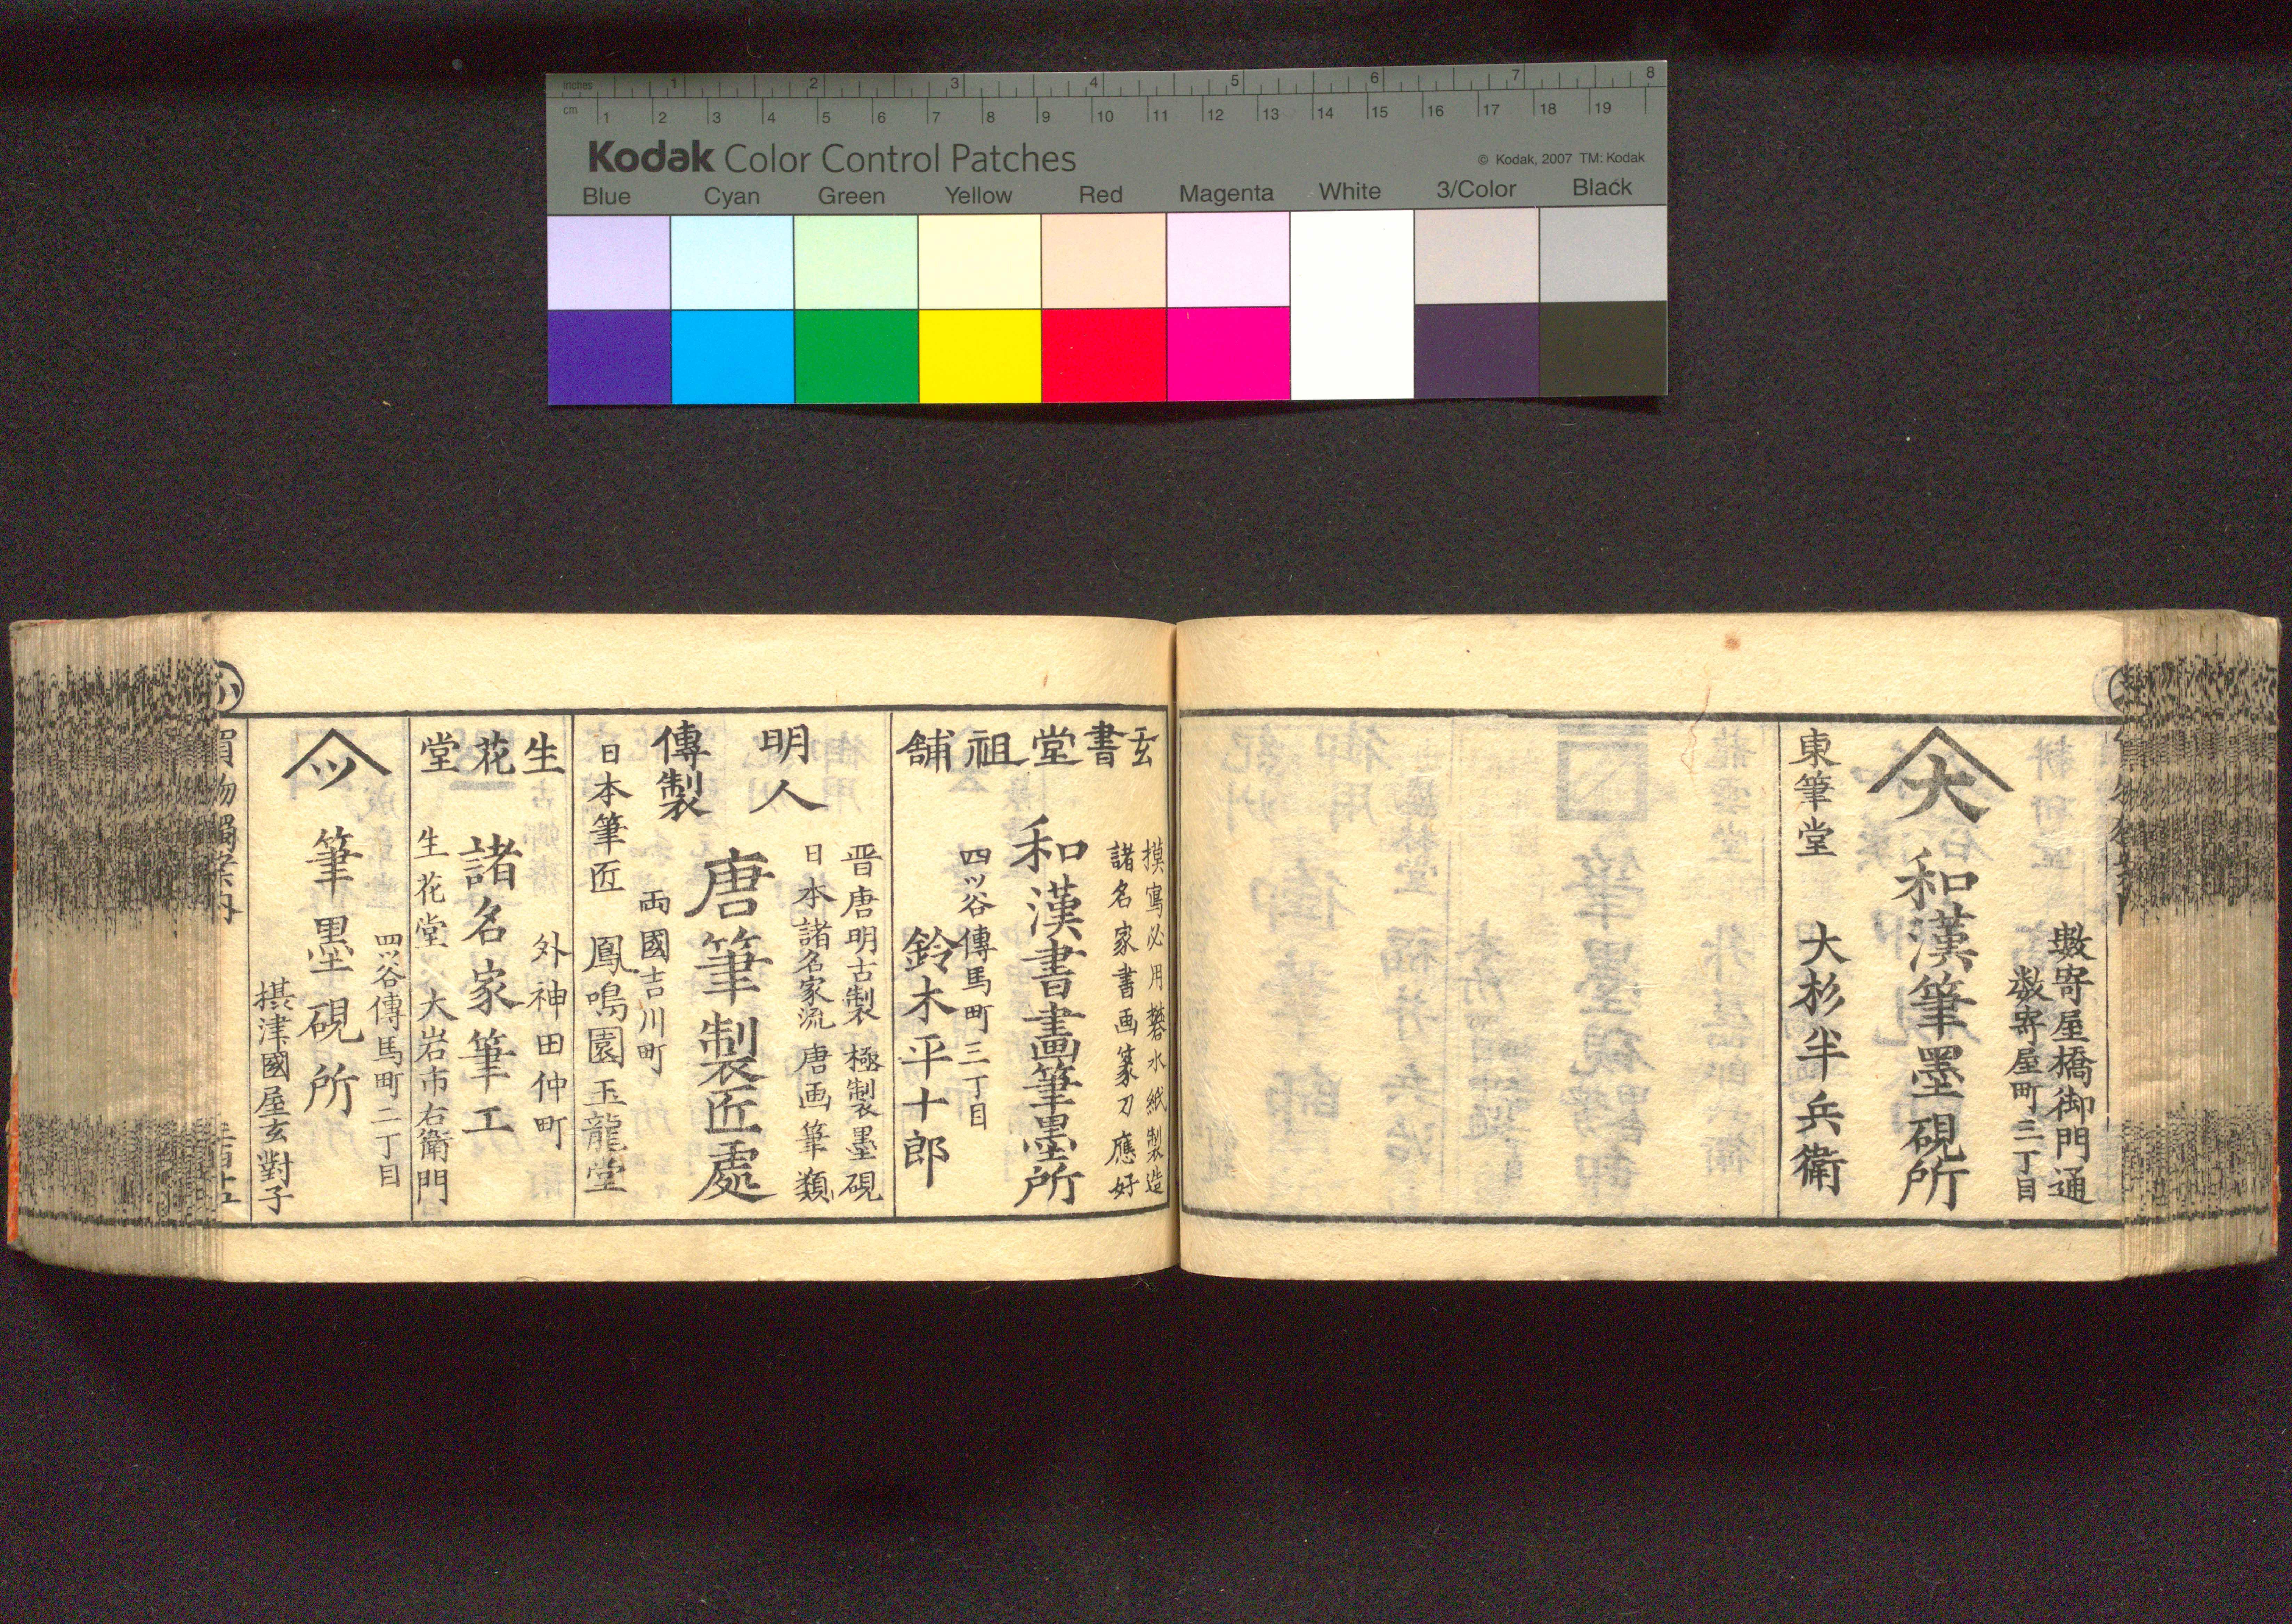 inches 1 2 3 4 5 6 7 8
cm 1 2 3 4 5 6 7 8 9 10 11 12 13 14 15 16 17 18 19
Kodak Color Control Patches
© Kodak, 2007 TM: Kodak
Blue Cyan Green Yellow Red Magenta White 3/Color Black
數寄屋橋御門通
数寄屋町三丁目
大
和漢筆墨硯所
東筆堂 大杉半兵衛
玄書堂祖舗
摸寫必用礬水紙製造
諸名家書画篆刀應好
和漢書畫筆墨所
四ッ谷傳馬町三丁目
鈴木平十郎
明人傳製
晋唐明古製 極製墨硯
日本諸名家流 唐画筆類
唐筆製匠處
両國吉川町
日本筆匠 鳳鳴園玉龍堂
生花堂
外神田仲町
諸名家筆工
生花堂 大岩市右衛門
ツ
四ッ谷傳馬町二丁目
筆墨硯所
摂津國屋玄對子